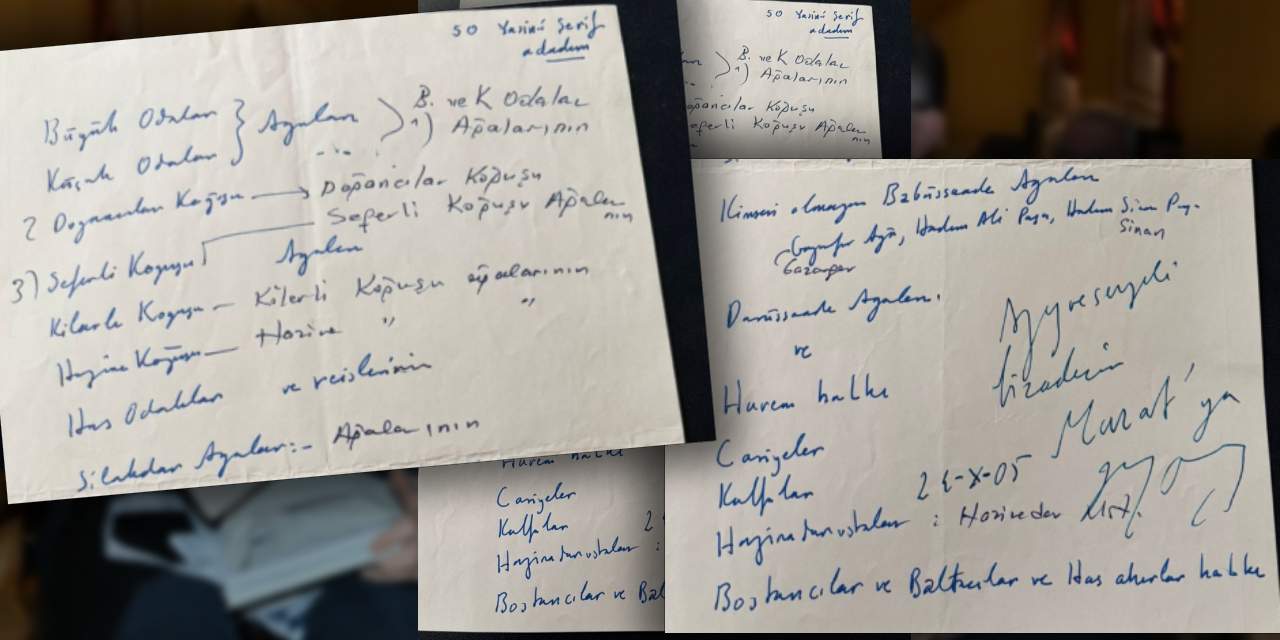 50 Yasini Şerif
adadım
Büyük Odaları } Ağaları
B. ve K Odalar
1) Ağalarının
Küçük Odaları
2 Doğancılar Koğuşu → Doğancılar Koğuşu
Seferli Koğuşu Ağala
rının
3) Seferli Koğuşu Ağaları
Kilerli Koğuşu — Kilerli Koğuşu ağalarının
Hazine Koğuşu — Hazine " "
Has Odalılar ve reislerinin
Silahdar Ağaları:- Ağalarının
50 Yasini Şerif
adadım
B. ve K Odalar
1) Ağalarının
Doğancılar Koğuşu
Seferli Koğuşu Ağala
nın
Kimsesi olmayan Babüssaade Ağaları
Gazanfer Ağa, Hadım Ali Paşa, Hadım Sinan Paşa
Gazanfer
Sinan
Darüssaade Ağaları.
ve
Harem halkı
Cariyeler
Kalfalar
Hazinedar ustalar : Hazinedar Ust.
Bostancılar ve Baltacılar ve Has ahırlar halkı
biraderim
Murat'ya
Harem halkı
Cariyeler
Kalfalar
Hazinedar ustalar :
Bostancılar ve Bal